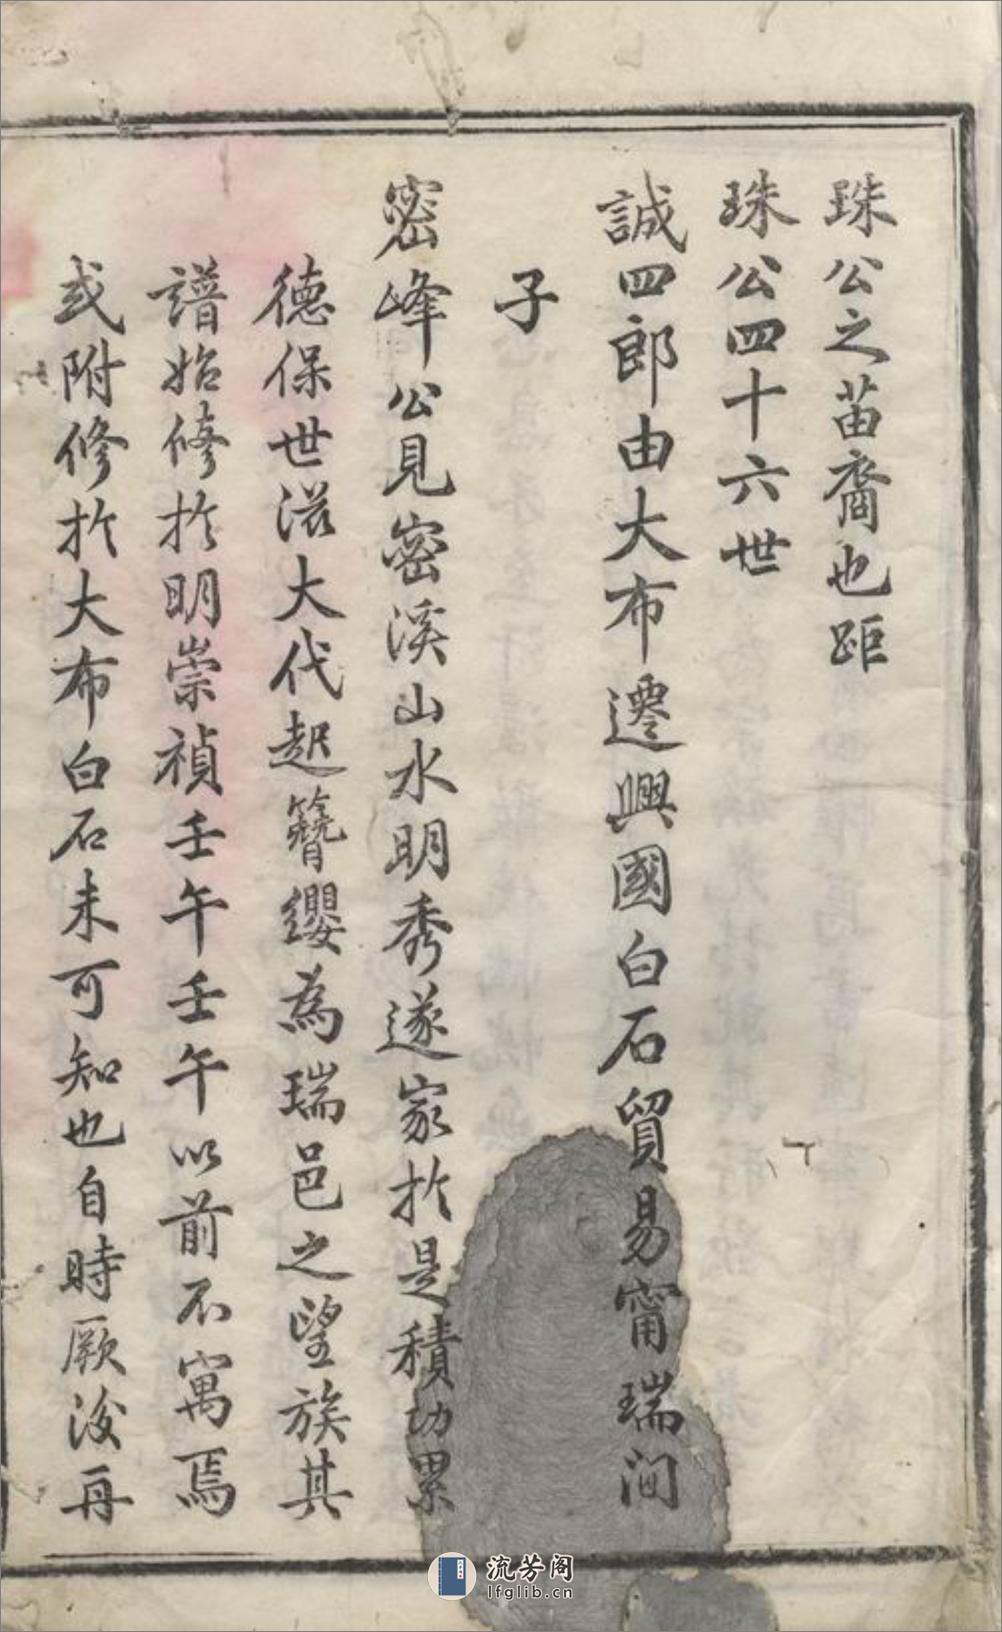 珠公之苗裔也距
珠公四十六世
誠四郎由大布遷興國白石貿易甯瑞间
子
密峰公見密溪山水明秀遂家於是積功累
德保世滋大代起簪纓為瑞邑之望族其
譜始修於明崇禎壬午壬午以前不寓焉
或附修於大布白石未可知也自時厥後再
流芳阁
lfglib.cn